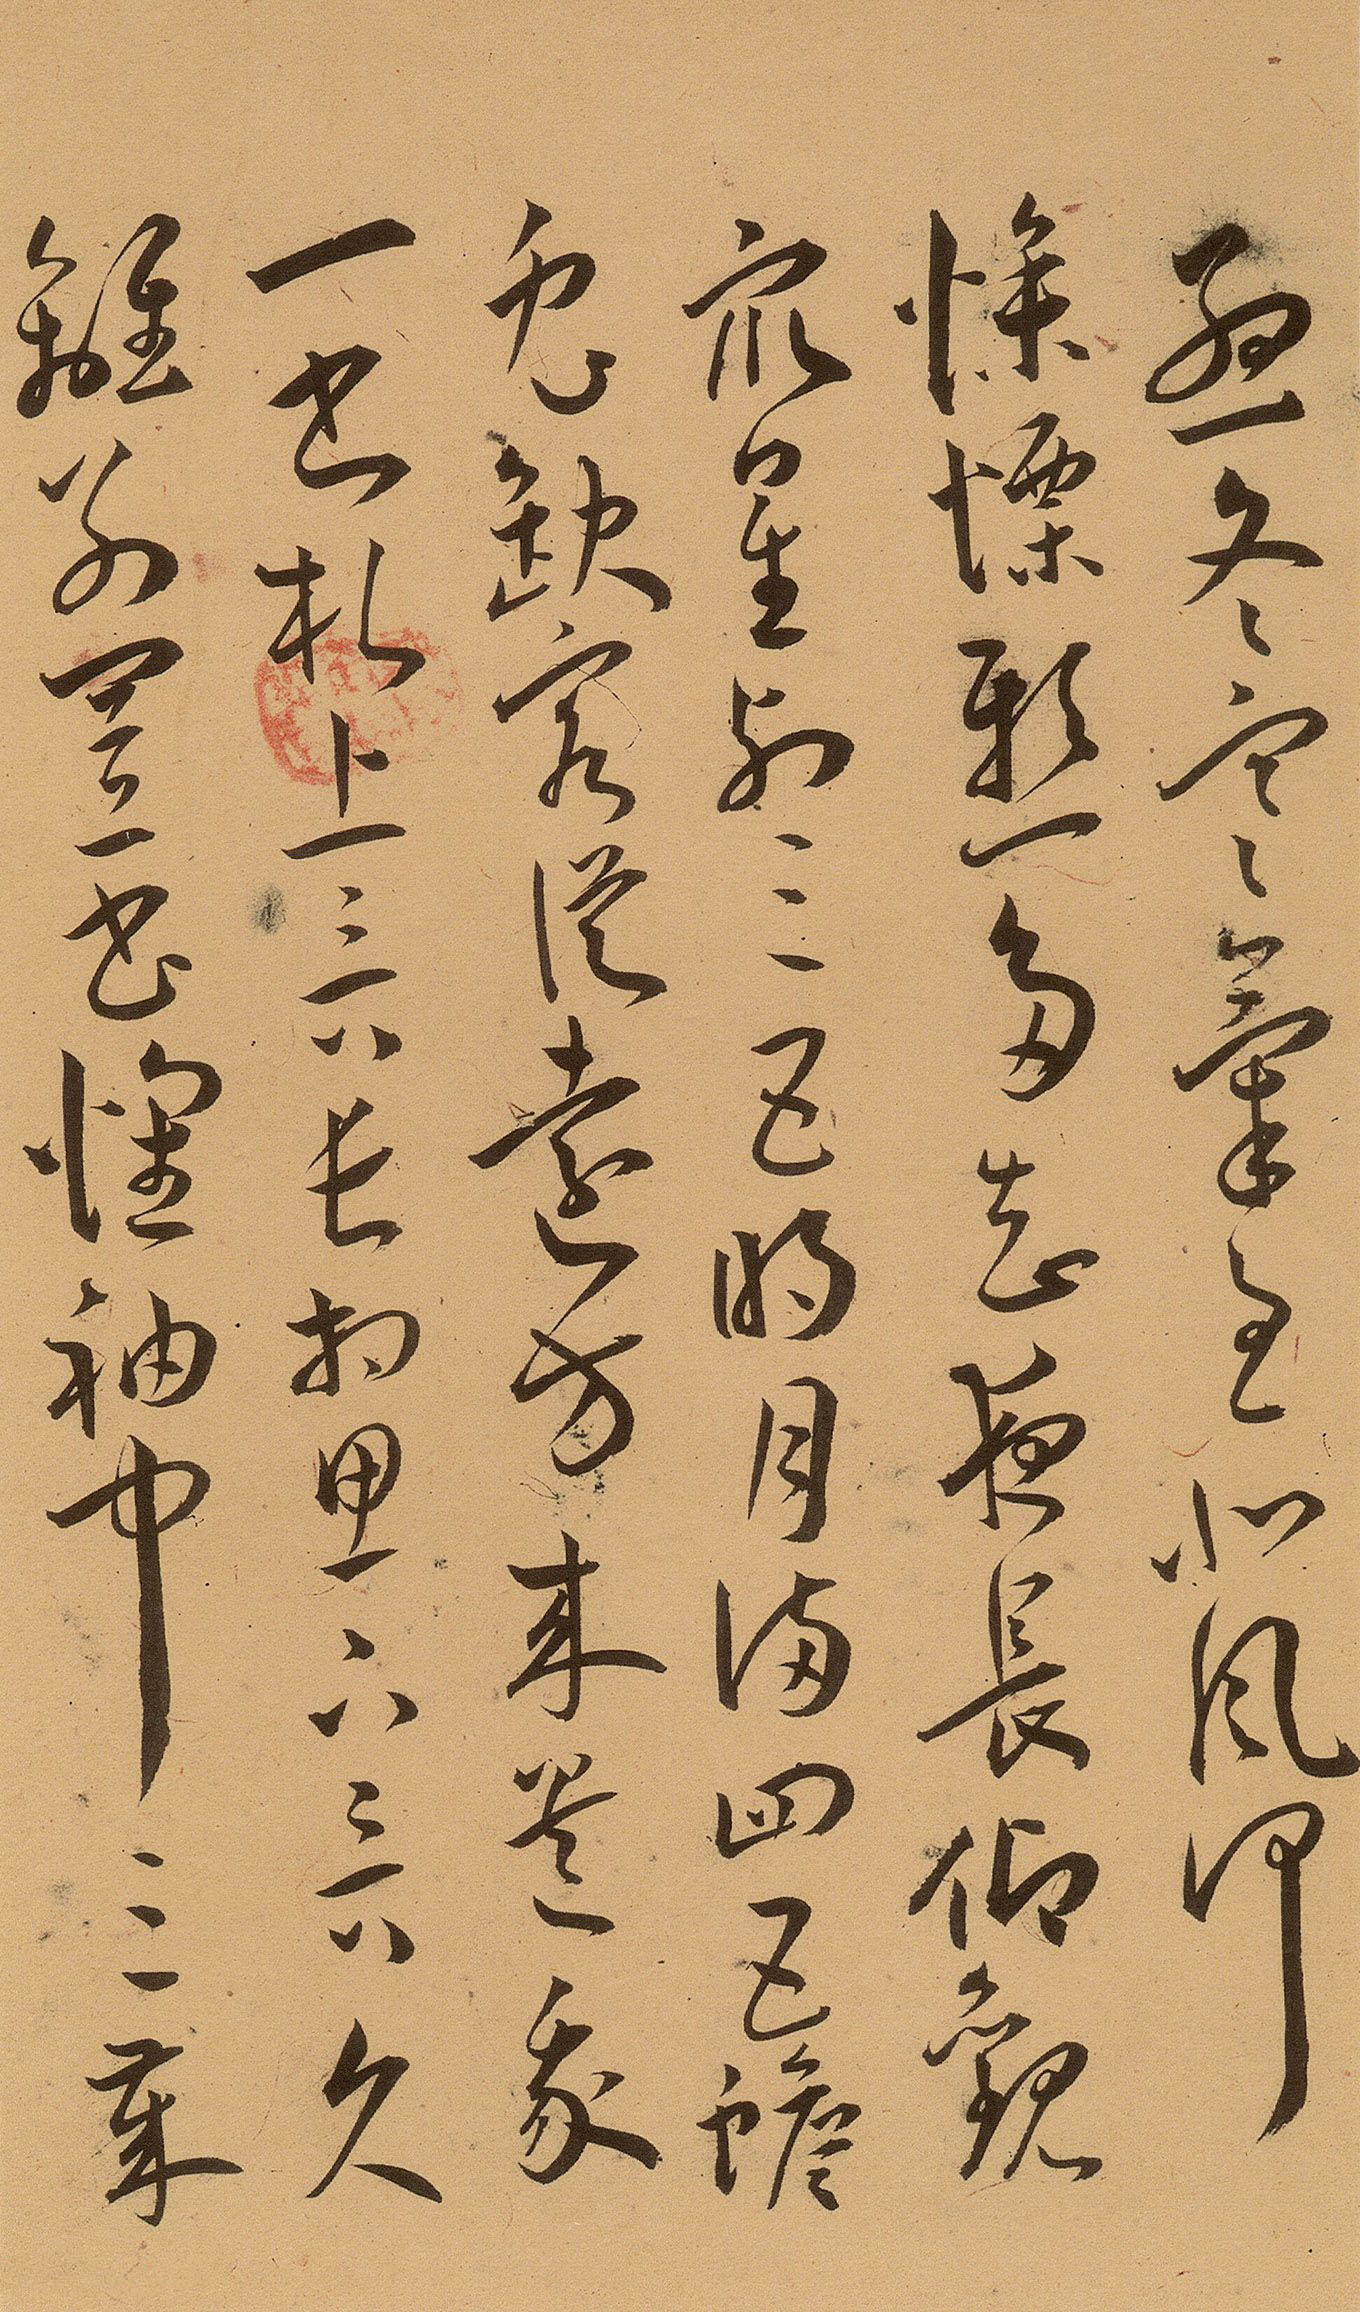 孟冬寒氣至北風何
慘慄愁多知夜長仰觀
衆星列三五明月滿四五蟾
兔缺客從遠方來遺我
一書札上言長相思下言久
離別置書懷袖中三歲